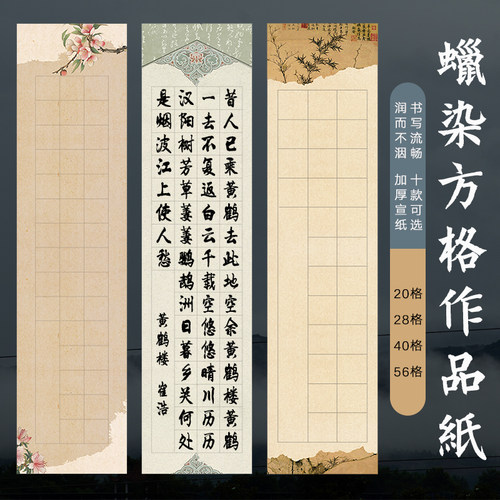 蠟染方格作品紙
书写流畅 十款可选
润而不洇 加厚宣纸
20格
28格
40格
56格
昔人已乘黄鹤去此地空余黄鹤楼黄鹤
一去不复返白云千载空悠悠晴川历历
汉阳树芳草萋萋鹦鹉洲日暮乡关何处
是烟波江上使人愁
黄鹤楼 崔浩